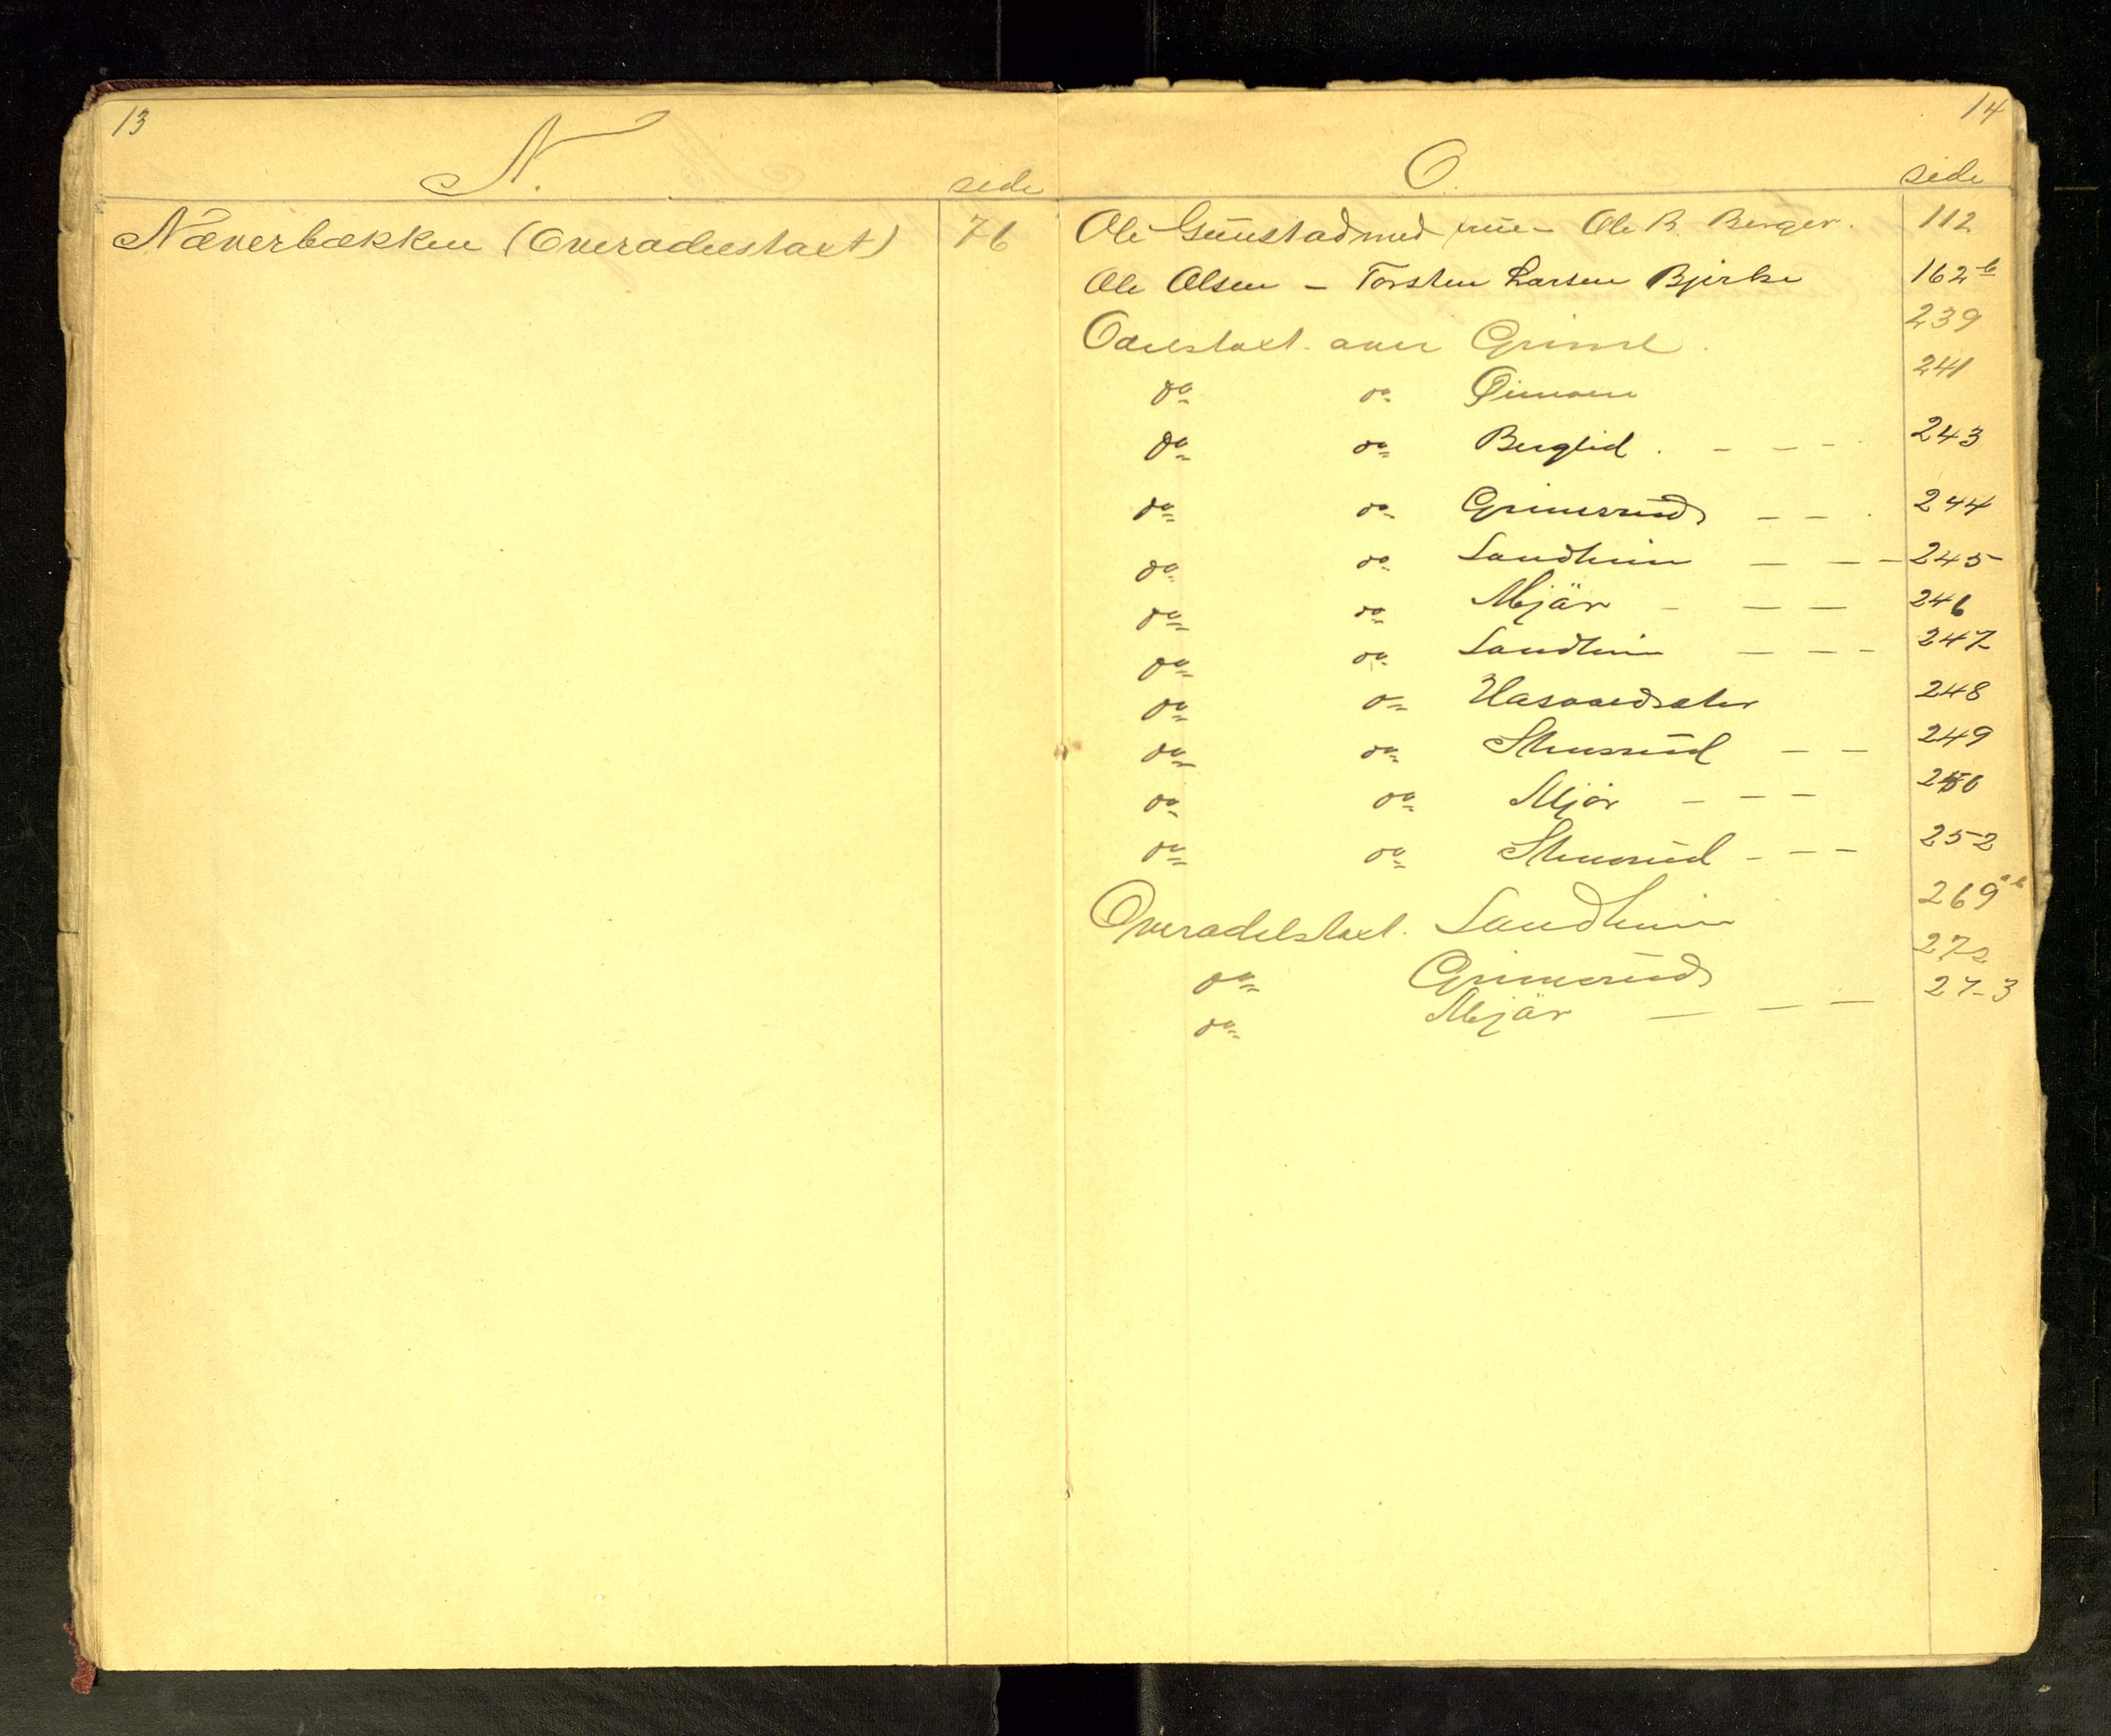 13
N.
side
Næverbækken (Overodelstaxt) 76
14
O.
side
Ole Gunstad med frue - Ole B. Berger. 112
Ole Olsen - Torsten Larsen Bjerke 162 b
Odelstaxt over Grime. 239
do do 241
do do Berglid. - - - 243
do do Grimsrud - - . 244
do do Sandhein - - - 245
do do Mjär - - - 246
do do Sandhein - - - 247
do do Hasaasdsæter 248
do do Stensrud - - 249
do do Mjör - - - 250
do do Stensrud - - - 252
Overodelstaxt. Sandhein 269 ab
do Grimsrud 272
do Mjär - - - 273